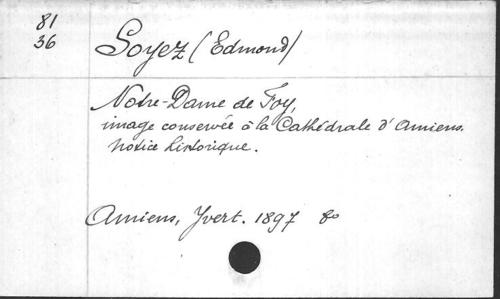 81
36
Soyez (Edmond)
Notre-Dame de Foy,
image conservée à la Cathédrale d'Amiens.
Notice historique.
Amiens, Yvert. 1897 8o